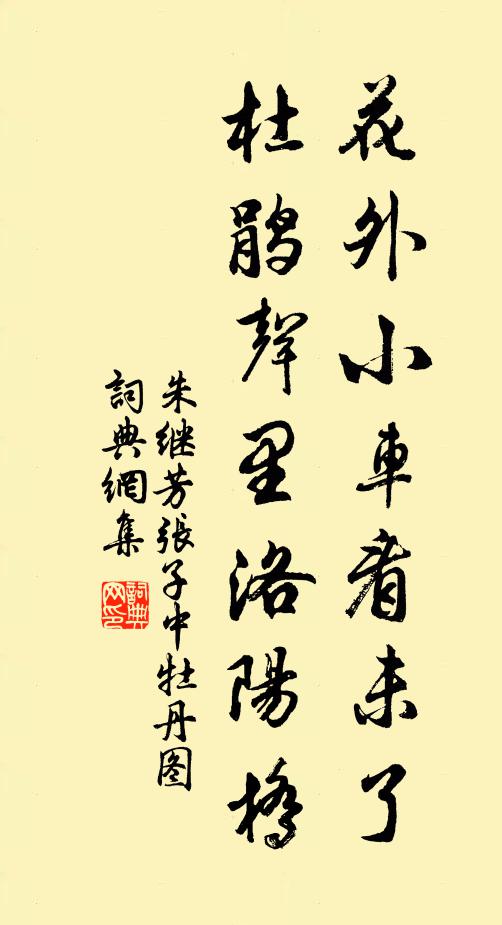 花外小車看未了
杜鵑聲里洛陽橋
朱继芳張子中牡丹图
詞典網集
詞典
网印